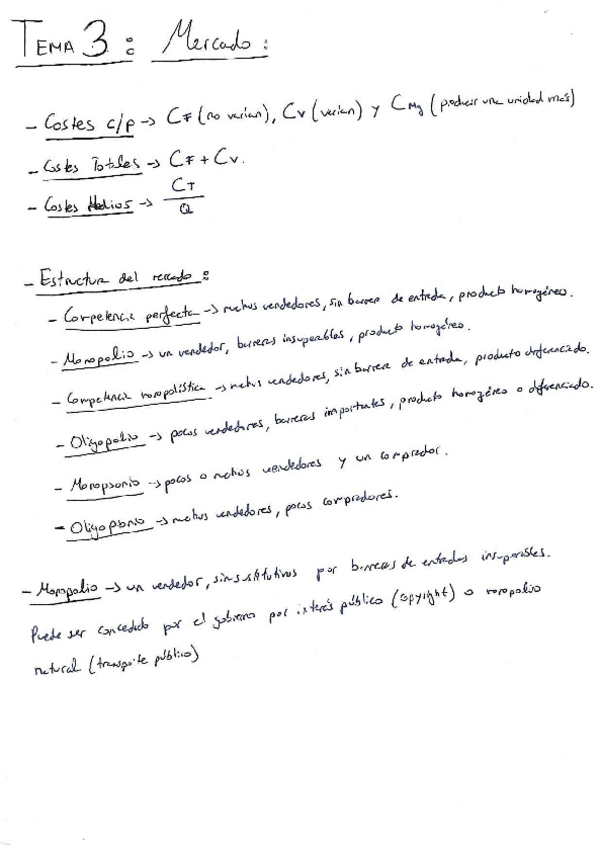 TEMA 3: Mercado:
- Costes c/p → CF (no varian), CV (varian) y CMg (producir una unidad más)
- Costes Totales → CF + CV.
- Costes Medios → CT / Q
- Estructura del mercado:
- Competencia perfecta → muchos vendedores, sin barrera de entrada, producto homogéneo.
- Monopolio → un vendedor, barreras insuperables, producto homogéneo.
- Competencia monopolística → muchos vendedores, sin barrera de entrada, producto diferenciado.
- Oligopolio → pocos vendedores, barreras importantes, producto homogéneo o diferenciado.
- Monopsonio → pocos o muchos vendedores y un comprador.
- Oligopsonio → muchos vendedores, pocos compradores.
- Monopolio → un vendedor, sin sustitutivos por barreras de entradas insuperables.
Puede ser concedido por el gobierno por interés público (copyright) o monopolio
natural (transporte público)